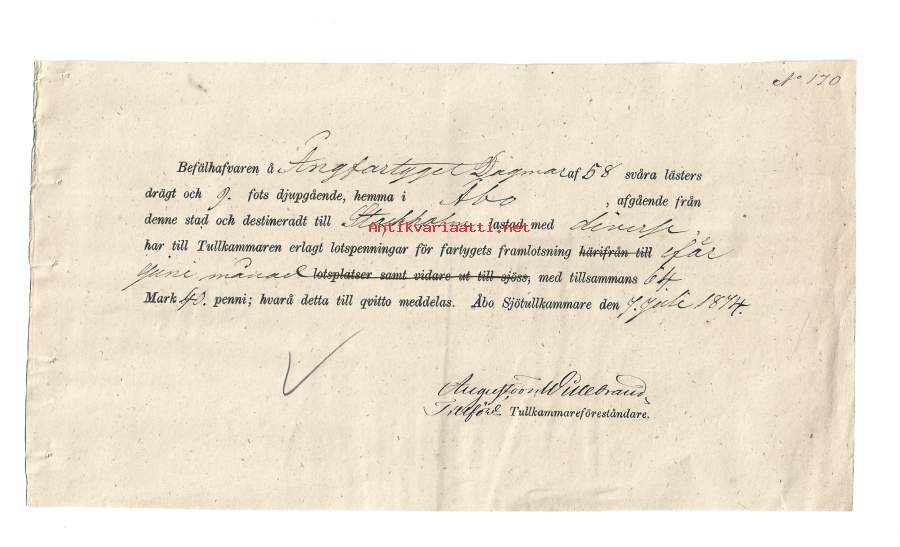 No 170
Befälhafvaren å Ångfartyget Dagmar af 58 svåra lästers
drägt och 9. fots djupgående, hemma i Åbo, afgående från
denne stad och destineradt till Stockholm lastad med diverse,
har till Tullkammaren erlagt lotspenningar för fartygets framlotsning härifrån till
juni månad lotsplatser samt vidare ut till sjöss, med tillsammans 64
Mark 40. penni; hvarå detta till qvitto meddelas. Åbo Sjötullkammare den 7 Juli 1874.
August von Willebrand
Tillförd. Tullkammareföreståndare.
antikvariaatti.net